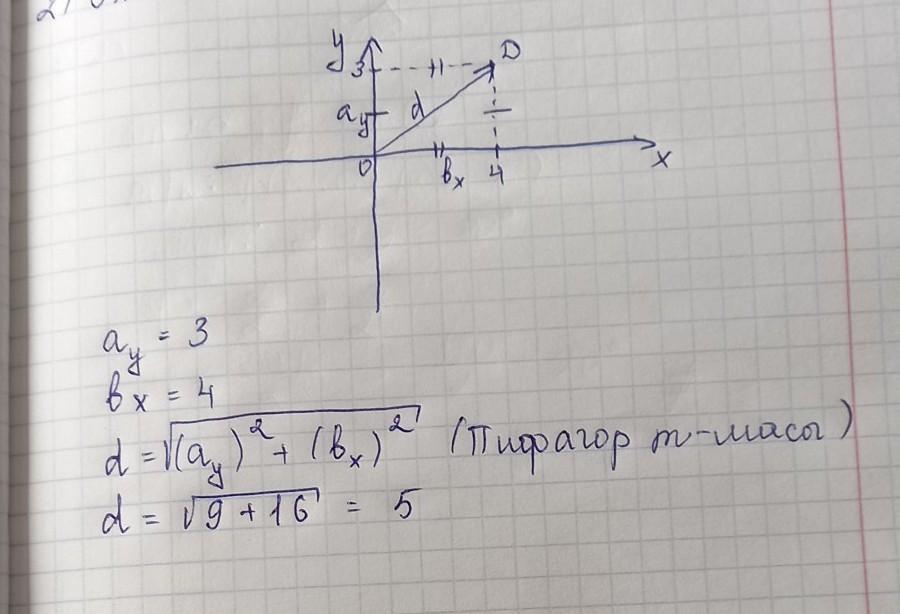 y
3
D
a_y
d
0
b_x
4
x
a_y = 3
b_x = 4
d = √(a_y)² + (b_x)² (Пифагор т-масы)
d = √9 + 16 = 5